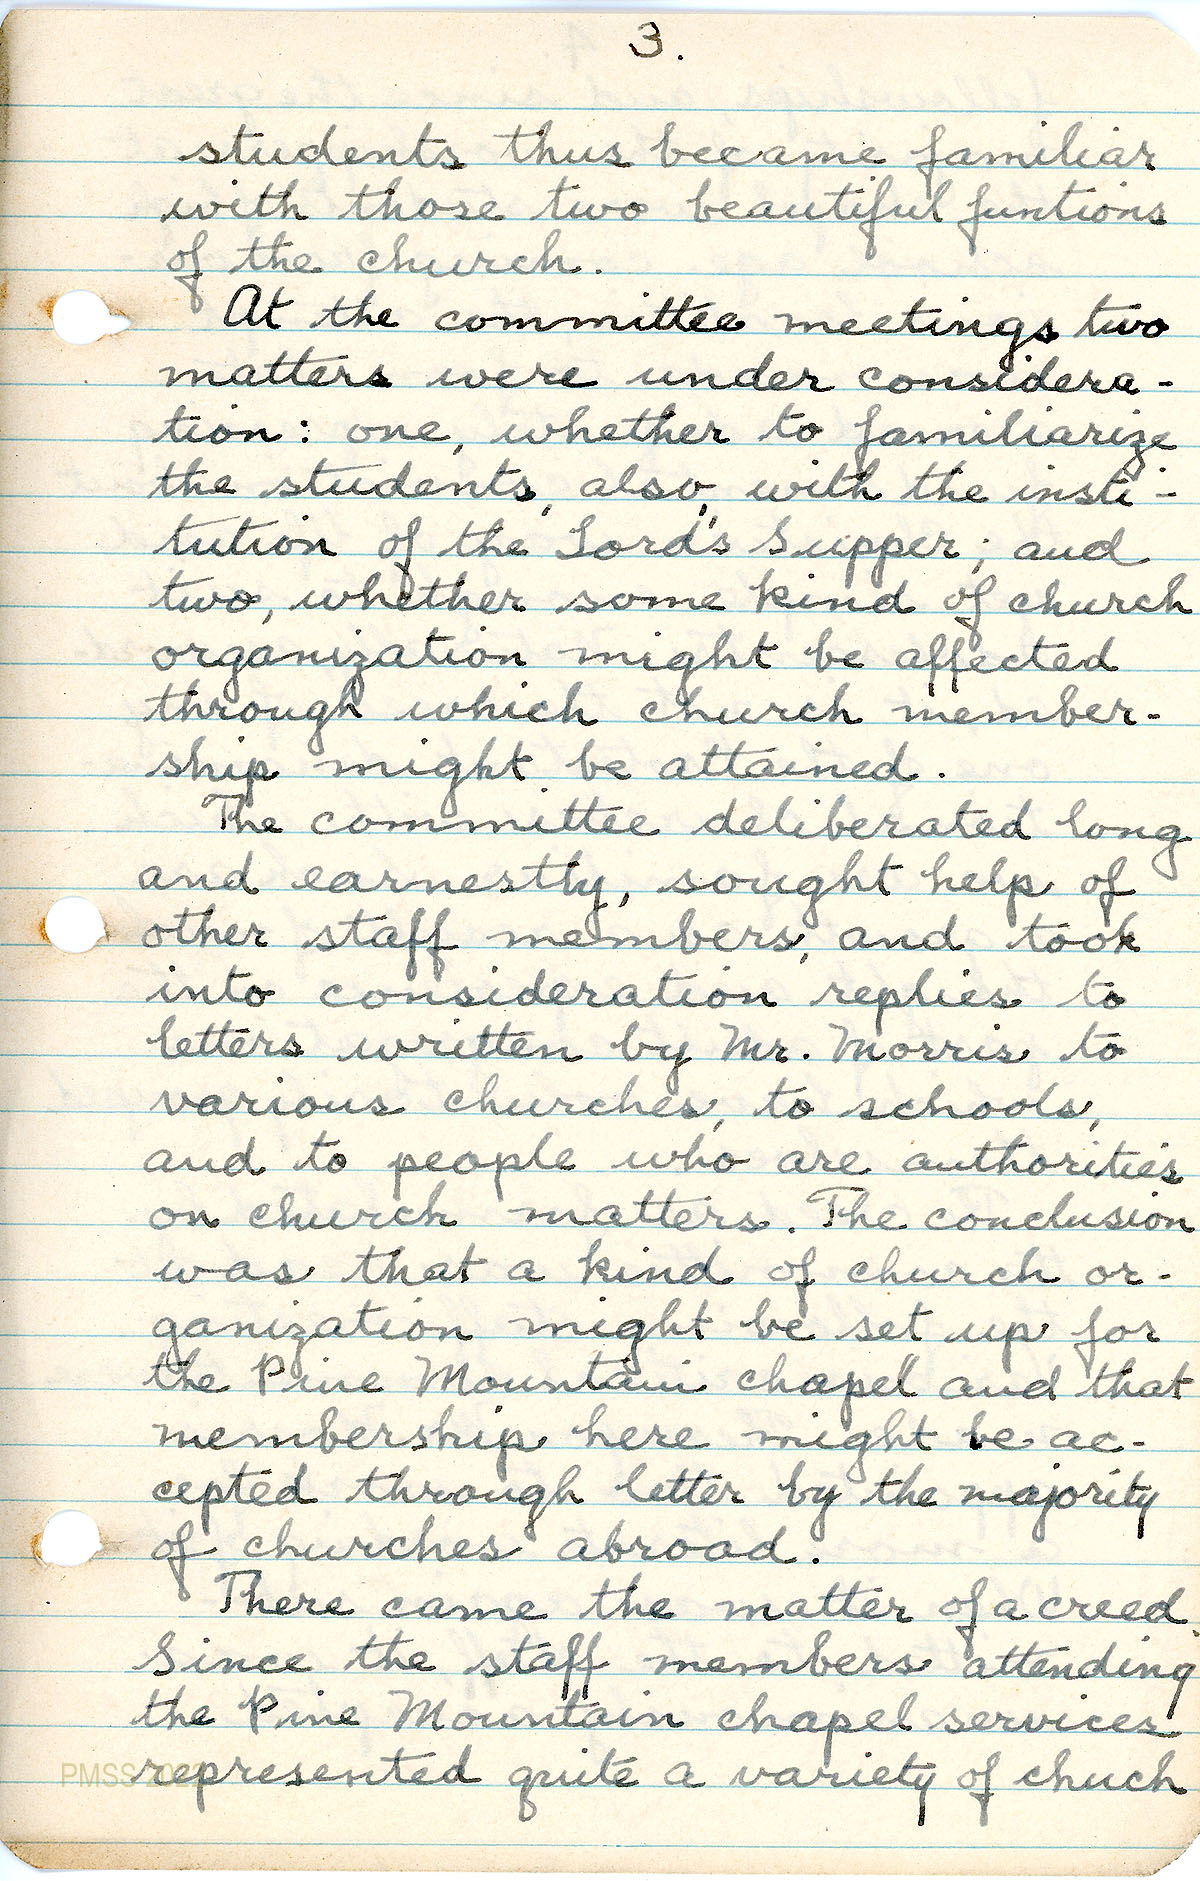 3.
students thus became familiar
with those two beautiful funtions
of the church.
At the committee meetings two
matters were under considera-
tion: one, whether to familiarize
the students, also, with the insti-
tution of the Lord's Supper; and
two, whether some kind of church
organization might be affected
through which church member-
ship might be attained.
The committee deliberated long
and earnestly, sought help of
other staff members, and took
into consideration replies to
letters written by Mr. Morris to
various churches, to schools,
and to people who are authorities
on church matters. The conclusion
was that a kind of church or-
ganization might be set up for
the Pine Mountain chapel and that
membership here might be ac-
cepted through letter by the majority
of churches abroad.
There came the matter of a creed.
Since the staff members attending
the Pine Mountain chapel services
represented quite a variety of chuch
PMSS